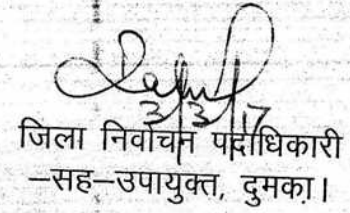 3/3/17
जिला निर्वाचन पदाधिकारी
–सह–उपायुक्त, दुमका।